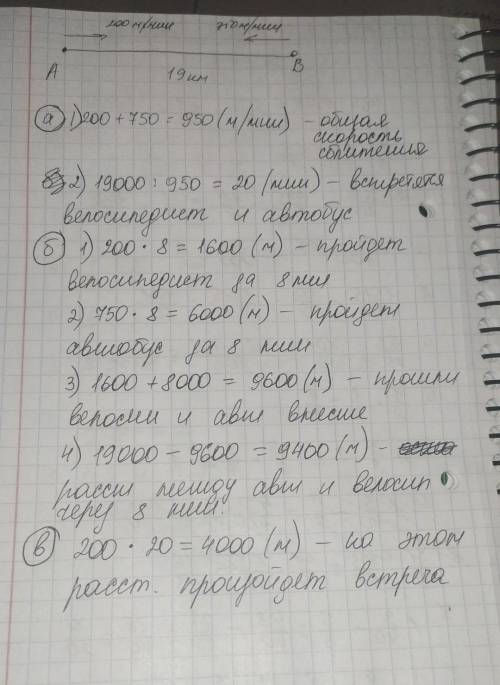 200 м/мин 750 м/мин
А В
19 км
а) 1) 200 + 750 = 950 (м/мин) – общая
скорость
сближения
2) 19000 : 950 = 20 (мин) – встретятся
велосипедист и автобус
б) 1) 200 · 8 = 1600 (м) – пройдет
велосипедист за 8 мин
2) 750 · 8 = 6000 (м) – пройдет
автобус за 8 мин
3) 1600 + 8000 = 9600 (м) – прошли
велоси и авт вместе
4) 19000 – 9600 = 9400 (м) –
расст между авт и велосип
через 8 мин.
в) 200 · 20 = 4000 (м) – на этом
расст. произойдет встреча